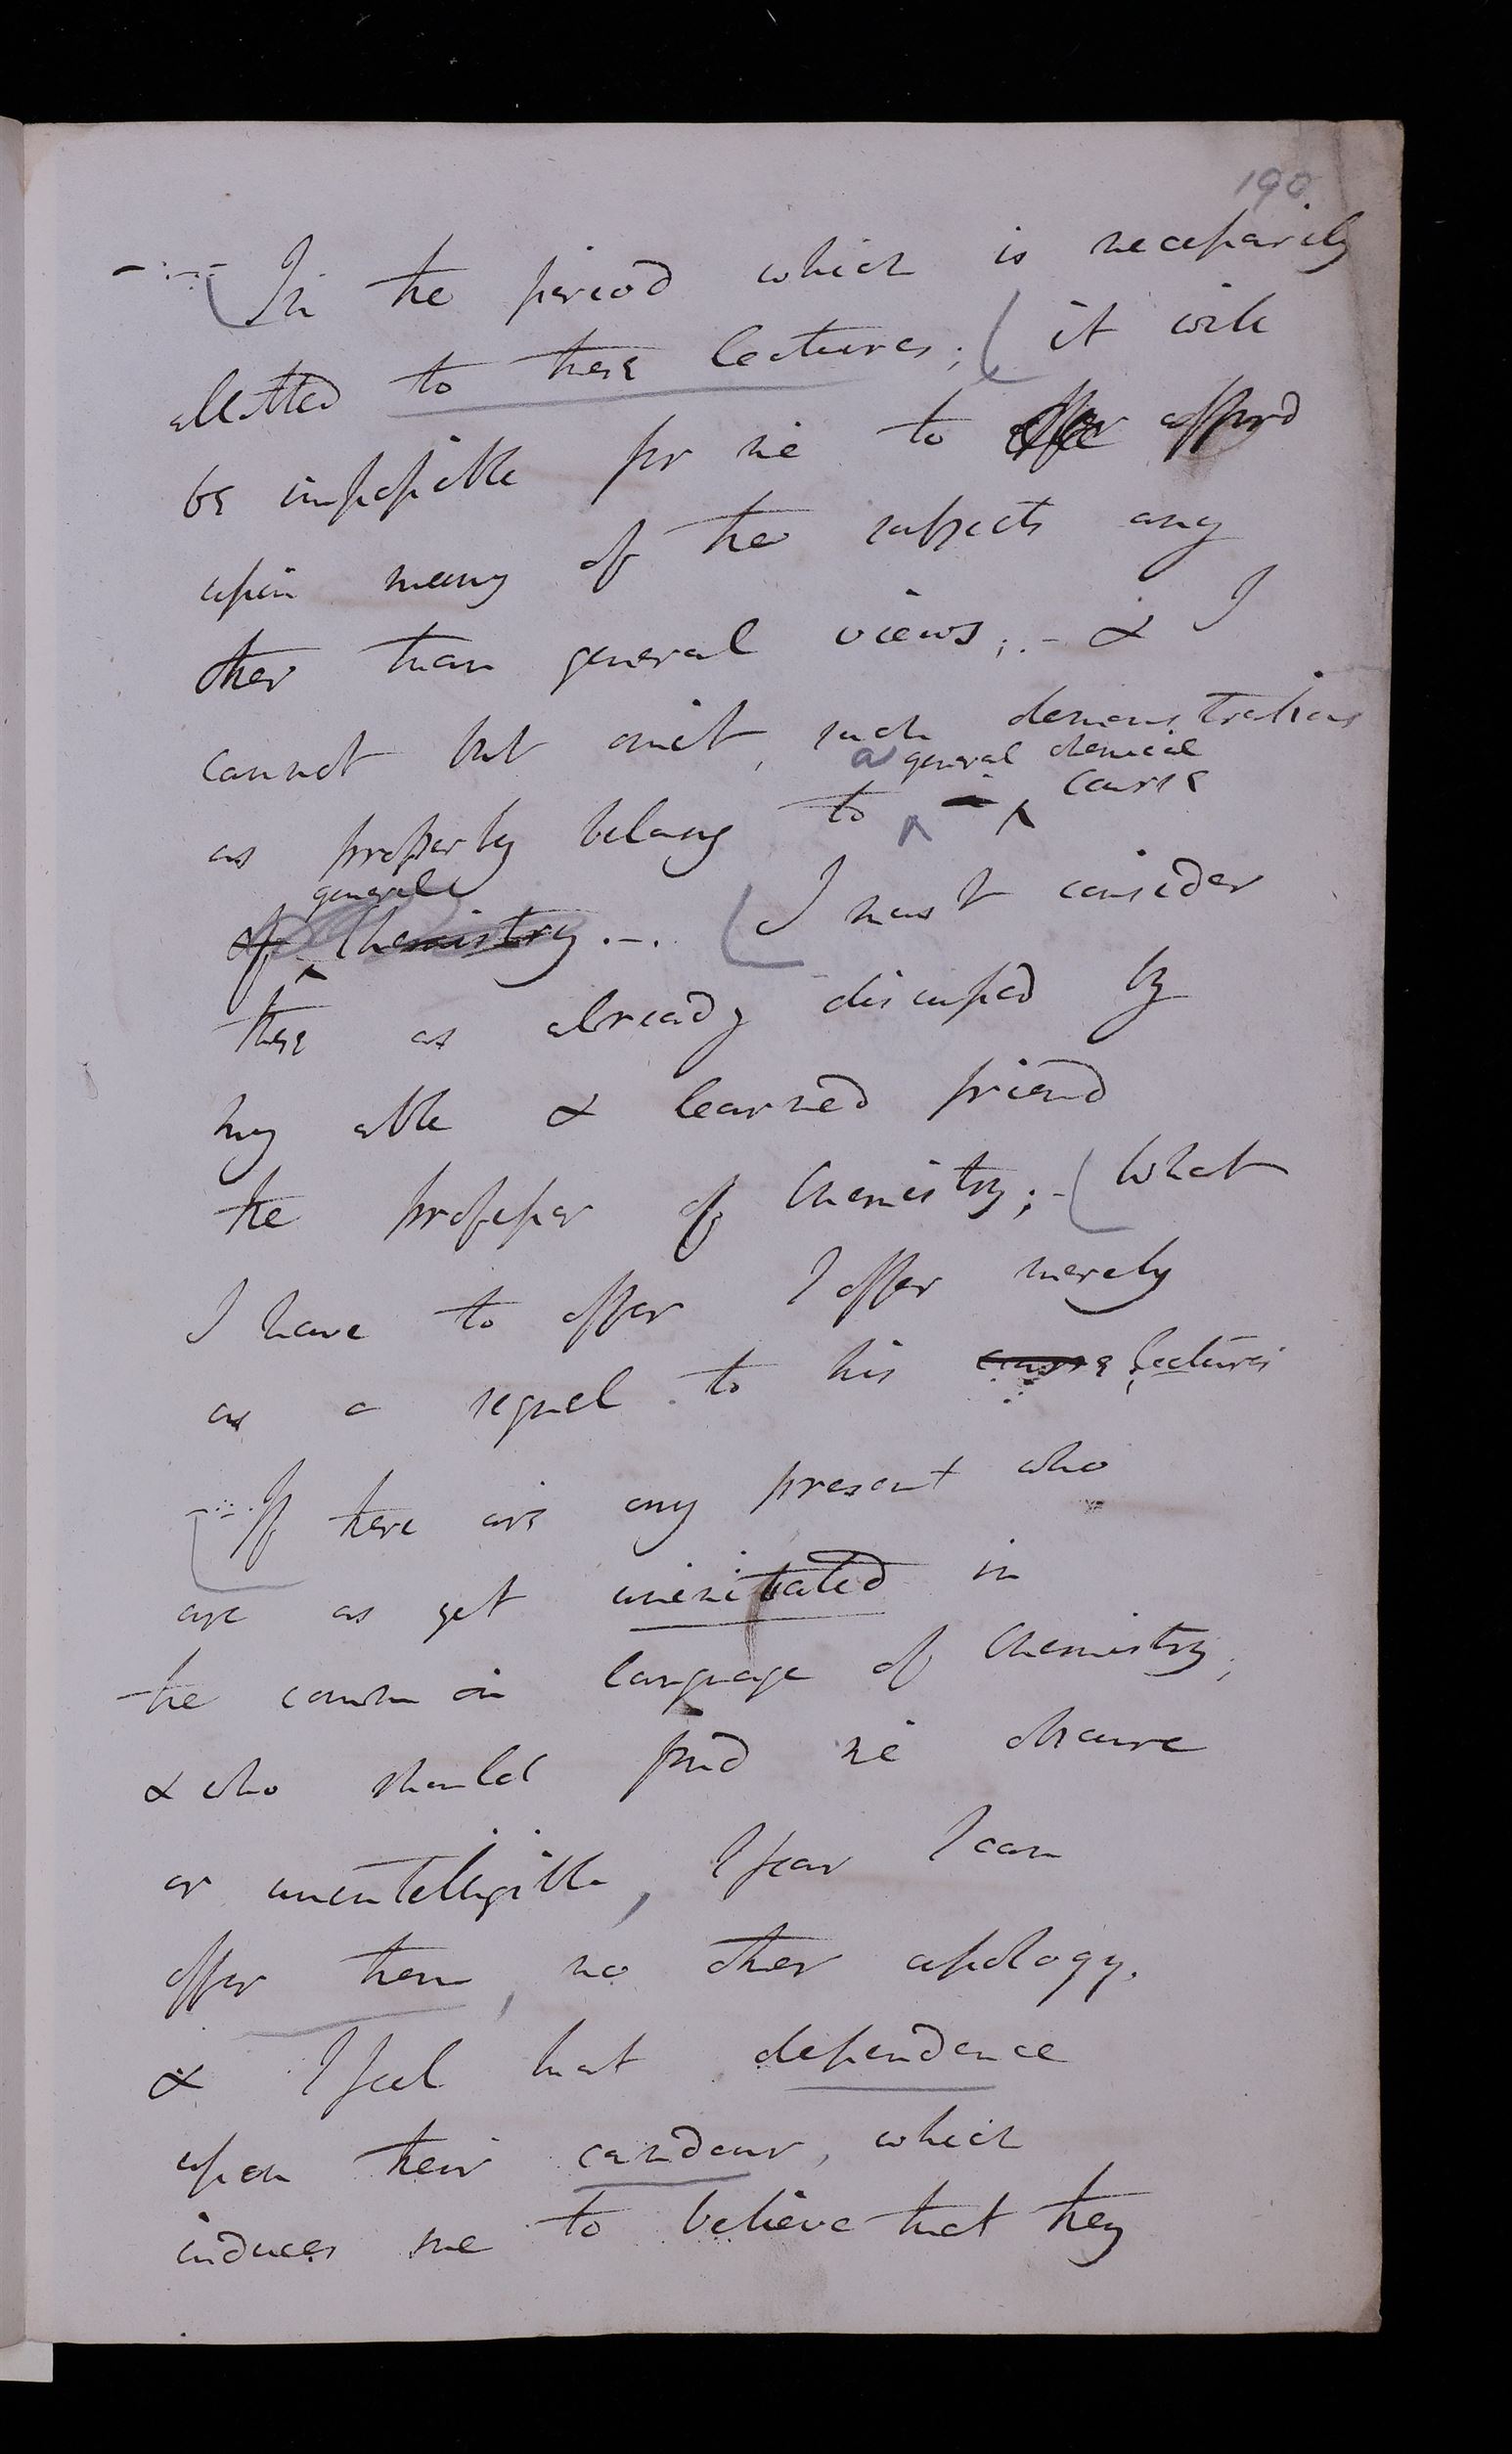 190
In the period which is necessarily
allotted to these lectures; it will
be impossible for me to offer afford
upon many of the subjects any
other than general views; - & I
cannot but omit, such demonstrations
a general chemical
as properly belong to a course
general
of Chemistry. -. I must consider
these as already discussed by
my able & learned friend
the professor of Chemistry; - What
I have to offer I offer merely
as a sequel to his course lectures
If there are any present who
are as yet uninitiated in
the common language of Chemistry,
& who should find me obscure
or unintelligible, I fear I can
offer them, no other apology.
& I feel that dependence
upon their candour, which
induces me to believe that they